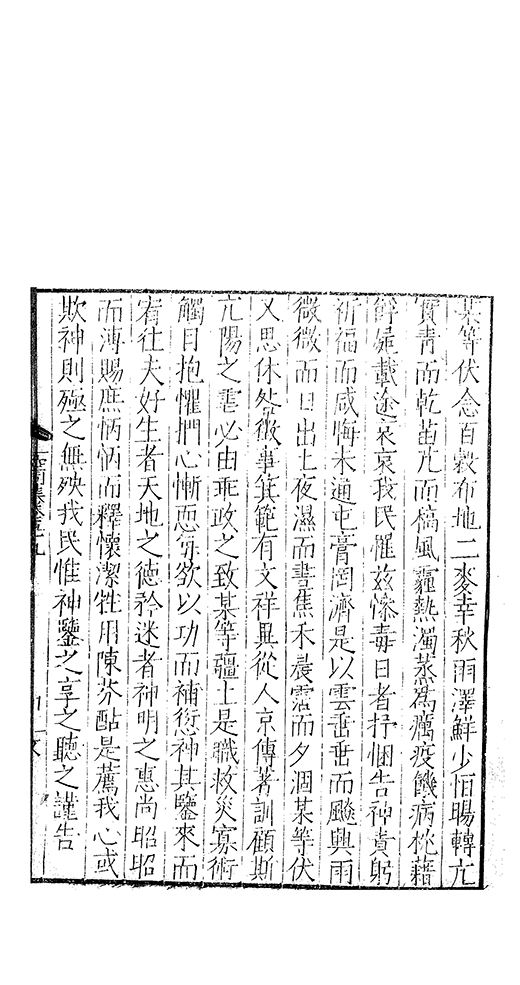 某等伏念百穀布地二麥幸秋雨澤鮮少恒暘轉亢
實青而乾苗凡而槁風霾熱濁蒸為癘疫饑病枕藉
殍屍載途哀哀我民罹茲慘毒日者抒悃告神責躬
祈福而咸悔未通屯膏罔濟是以雲垂垂而颷興雨
微微而日出土夜濕而晝焦禾晨霑而夕涸某等伏
又思休咎徵事箕範有文祥異從人京傳著訓顧斯
亢陽之害必由乖政之致某等疆土是職救災寡術
觸目抱懼捫心慚恧每欲以功而補愆神其鑒來而
宥往夫好生者天地之德矜迷者神明之惠尚昭昭
而溥賜庶怲怲而釋懷潔牲用陳芬酤是薦我心或
欺神則殛之無殃我民惟神鑒之享之聽之謹告